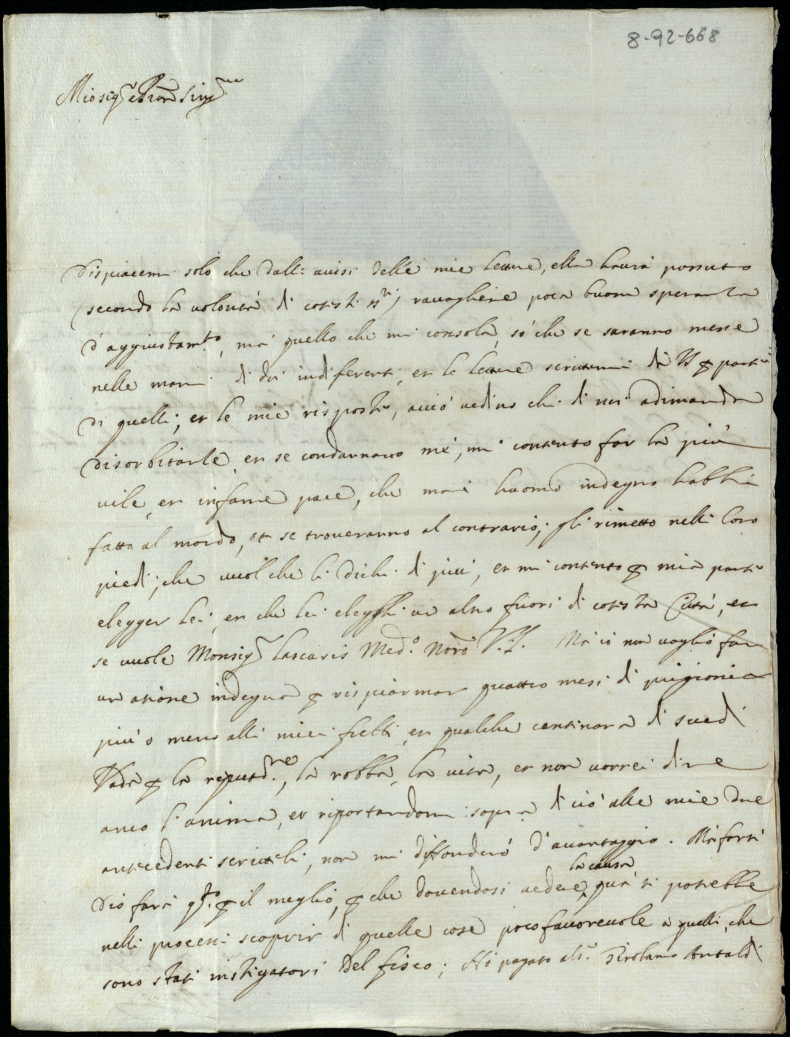 8-92-668
Mio sig.r e Pron Sing.mo
Dispiacemi solo che dalli auisi delle mie lettere, ella haurà possuto
(secondo la volontà di cotesti ss.ri) racogliere poca buona speranza
d'aggiustam.to, mà quello che mi consola, sò che se saranno messe
nelle mani di doi indiferenti, et le lettere scrittemi di V.S. per parte
di quelli, et le mie risposte, acciò vedino chi di noi adimanda
disorbitanze, et se condannano me, mi contento far la più
uile, et infame pace, che mai huomo indegno habbia
fatta al mondo, et se troueranno al contrario, gli rimetto nelli loro
piedi; che uuol che li dichi di più, et mi contento per mia parte
elegger lei, et che lei elegghi un altro fuori di cotesta Città, et
se uuole Monsig.r Lascaris Med.o Mà io non voglio far
un atione indegna per rispiarmar quattro mesi di prigionia
più o meno alli miei frelli, et qualche centinara di scudi
Vada per la reputat.ne, la robba, la uita, et non uorrei dire
anco l'anima, et riportandomi sopra di ciò alle mie due
antecedenti scritteli, non mi diffonderò d'auantaggio. Mà forsi
Dio farà q.to per il meglio, per che douendosi uedere la causa quà si potrebbe
nelli processi scoprir di quelle cose poco fauoreuole à quelli, che
sono stati instigatori del fisco; Hò pagato al s.r Girolamo Antaldi